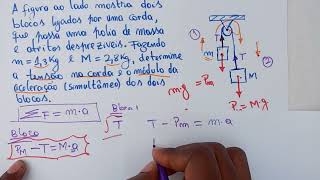 A figura ao lado mostra dois
blocos ligados por uma corda,
que passa uma polia de massa
e atritos desprezíveis. Fazendo
m = 1,3Kg e M = 2,8Kg, determine
a tensão na corda e o módulo da
aceleração (simultânea) dos dois
blocos.
ΣF = m·a
Bloco 1
T
T - Pm = m·a
Bloco
Pm - T = M·a
m
T
M
m·g = Pm
P = M·g
1
2